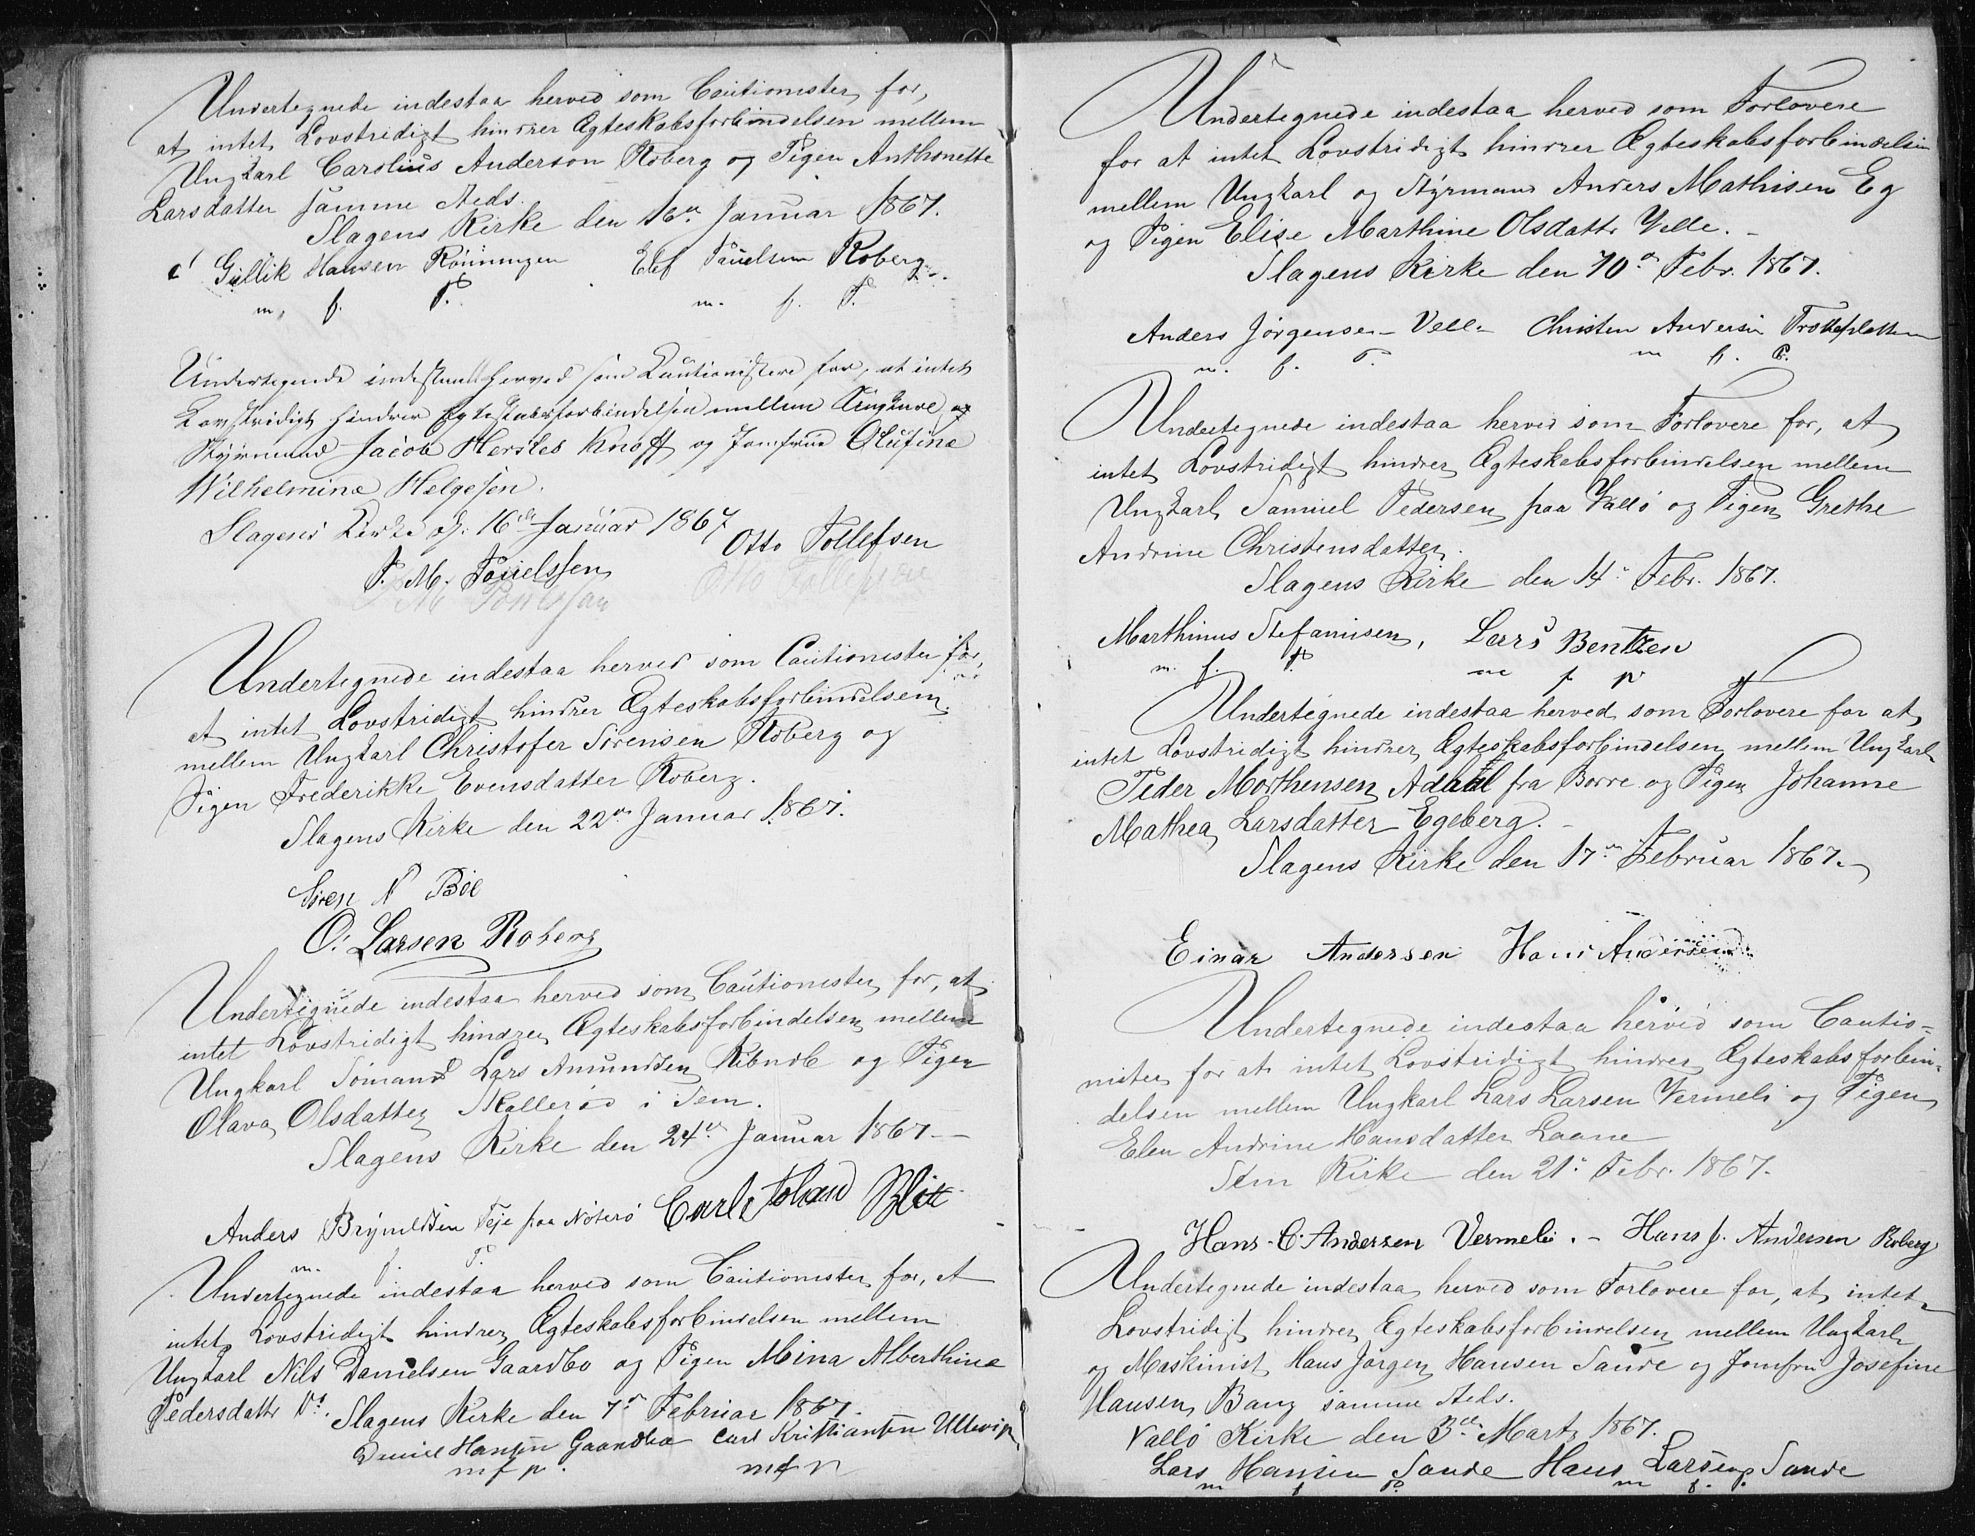 Undertegnede indestaa herved som Cautionister, for,
at intet Lovstridigt hindrer Ægteskabsforbindelsen mellem
Ungkarl Carolius Anderson Roberg og Pigen Anthonette
Larsdatter samme Steds.
Slagens Kirke den 16de Januar 1867.
Gullik Hansen Rönningen Elef Paulsen Roberg
m. f. P. m. f. P.
Undertegnede indestaa herved som Cautionistere for, at intet
Lovstridigt hindrer Egteskabsforbindelsen mellem Ungkarl og
Styrmand Jacob Hersleb Knoff og Jomfrue Olufine
Wilhelmine Helgesen.
Slagens Kirke d. 16de Januar 1867
Otto Tollefsen
P. M. Paulssen
Undertegnede indestaa herved som Cautionister for,
at intet Lovstridigt hindrer Ægteskabsforbindelsen
mellem Ungkarl Christofer Sörensen Roberg og
Pigen Frederikke Evensdatter Roberg.
Slagens Kirke den 22de Januar 1867.
Sören N Böe
O. Larsen Roberg
Undertegnede indestaa herved som Cautionister, for, at
intet Lovstridigt hindrer Ægteskabsforbindelsen mellem
Ungkarl Sömand Lars Amundsen og Pigen
Olava Olsdatter Skallerød i Sem.
Slagens Kirke den 24de Januar 1867.
Anders Brynildsen Teje paa Nöterö Carl Johan
m. f. P.
Undertegnede indestaa herved som Cautionister, for, at
intet Lovstridigt hindrer Ægteskabsforbindelsen mellem
Ungkarl Nils Danielsen Gaardbo og Pigen Mina Alberthine
Pedersdattr Slagens Kirke den 7de Februar 1867.
Daniel Hansen Gaardbo Carl Kristiansen Ullevip
m f p. m f p
Undertegnede indestaa herved som Forlovere
for at intet Lovstridigt hindrer Ægteskabsforbindelsen
mellem Ungkarl og Styrmand Anders Mathisen Eg
og Pigen Elise Marthine Olsdattr Velle.
Slagens Kirke den 10de Febr. 1867.
Anders Jörgensen Velle Christen Andersen
m. f. P. m f. P.
Undertegnede indestaa herved som Forlovere for, at
intet Lovstridigt hindrer Ægteskabsforbindelsen mellem
Ungkarl Samuel Pedersen paa Vallö og Pigen Grethe
Andrine Christensdatter.
Slagens Kirke den 14de Febr. 1867.
Marthinus Stefanisen, Lars Bentzen
m. f. P. m f p
Undertegnede indestaa herved som Forlovere for at
intet Lovstridigt hindrer Ægteskabsforbindelsen mellem Ungkarl
Peder Morthensen Adahl fra Borre og Pigen Johanne
Mathea Larsdatter Egeberg.
Slagens Kirke den 17de Februar 1867.
Einar Andersen Hans Andersen
Undertegnede indestaa herved som Cautio-
nister for at intet Lovstridigt hindrer Ægteskabsforbin-
delsen mellem Ungkarl Lars Larsen Vermeli og Pigen
Elen Andrine Hansdatter Laane
Sem Kirke den 21de Febr. 1867.
Hans. C. Andersen Vermeli. - Hans J. Andersen Roberg
Undertegnede indestaa herved som Forlovere for, at intet
Lovstridigt hindrer Ægteskabsforbindelsen mellem Ungkarl
og Maskinist Hans Jörgen Hansen Sande og Jomfru Josefine
Hansen Bang samme Steds.
Vallö Kirke den 3de Marts 1867.
Lars Hansen Sande Hans Larsen Sande
m f P. m f. P.